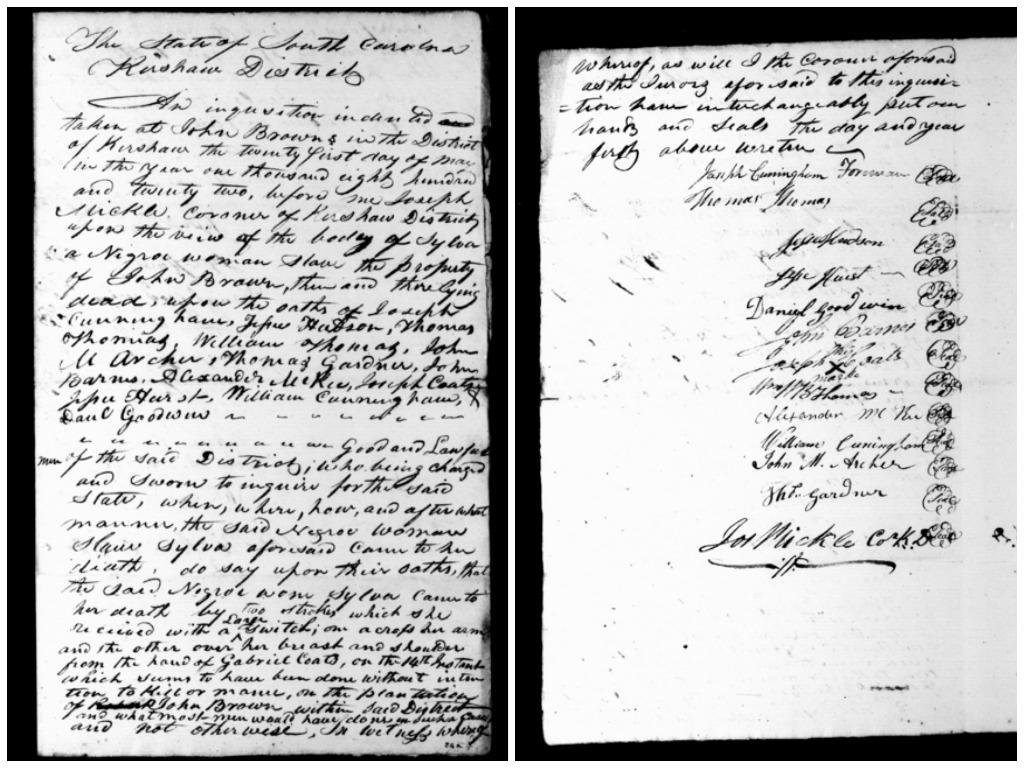 The State of South Carolina
Kershaw District
An inquisition indented and
taken at John Browns in the District
of Kershaw the twenty first day of may
in the year one thousand eight hundred
and twenty two, before me Joseph
Mickle Coroner of Kershaw District
upon the view of the boday of Sylva
a Negroe woman Slave the Property
of John Brown, then and there lying
dead, upon the oaths of Joseph
Cunningham, Jesse Hutson, Thomas
Thomas, William Thomas, John
M Archer, Thomas Gardner, John
Barns, Alexander McKee, Joseph Coats
Jesse Hurst, William Cunningham, &
Danl Goodwin
Good and Lawful
men of the said District, who being charged
and Sworn to inquire for the said
State, when, where, how, and after what
manner, the said Negroe woman
Slave Sylva aforesaid came to her
death, do say upon their oaths, that
the said Negroe wom Sylva came to
her death by two strokes which she
received with a Large Switch; one across her arm
and the other over her breast and shoulder
from the hand of Gabriel Coats, on the 14th Instant
which sums to have been done without inten
tion to Kill or maim, on the plantation
of John Brown within said District
and what most men would have done in such a case
and not otherwise, In witness whereof
whereof, as will I the Coroner aforesaid
as the Jurors aforesaid to this inquisi-
=tion have interchangeably put our
hands and Seals the day and year
first above wreten
Joseph Cuningham Foreman Seal
Thomas Thomas Seal
Jesse Hudson Seal
Jesse Hurst Seal
Daniel Goodwin Seal
John Barnes Seal
his
Joseph X Coats Seal
marke
Wm Thomas Seal
Alexander Mc Kee Seal
William Cuningham Seal
John M. Archer Seal
Tho. Gardner Seal
Jos Mickle Cor K. D Seal